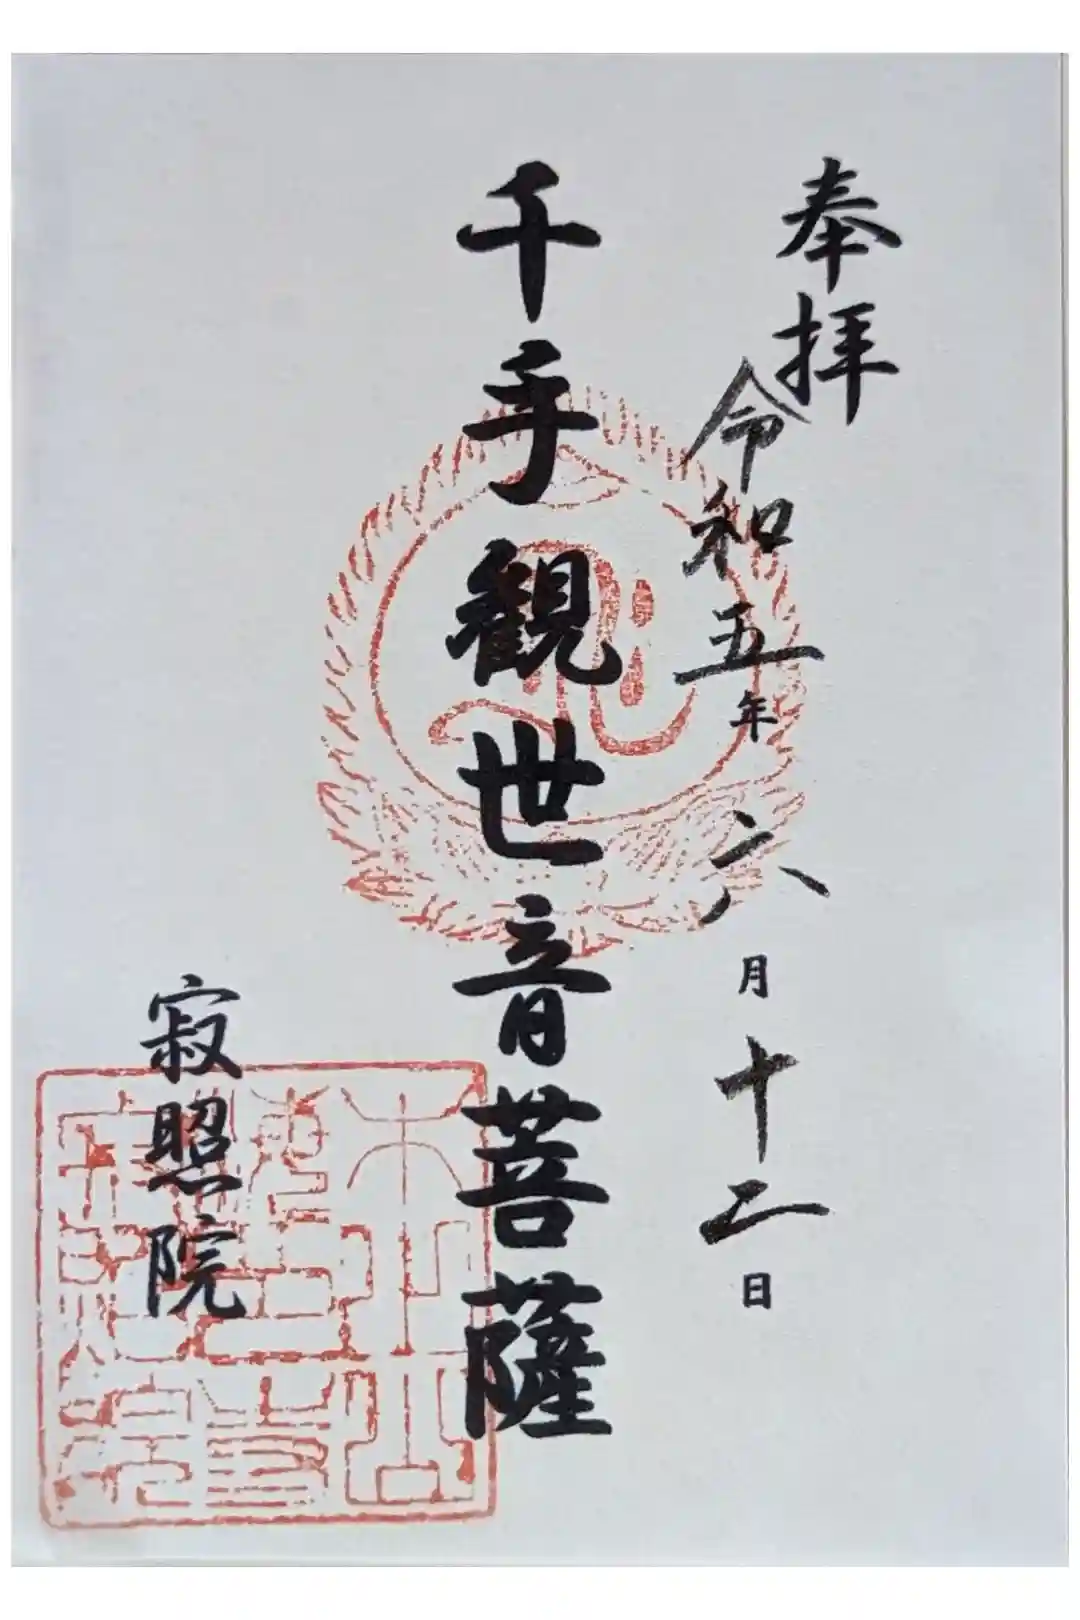 奉拝
令和五年六月十二日
千手観世音菩薩
寂照院